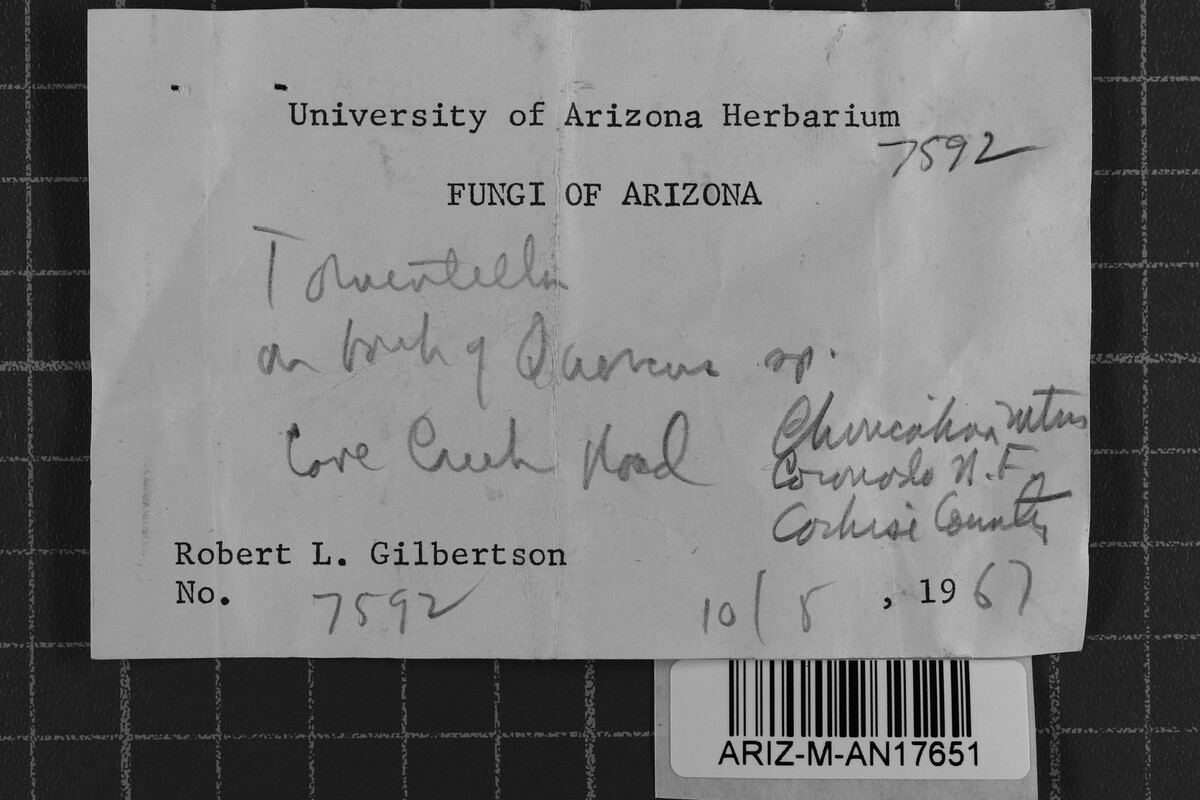 University of Arizona Herbarium
7592
FUNGI OF ARIZONA
Tomentella
on bark of Quercus sp.
Cave Creek Road
Chiricahua Mtns
Coronado N.F.
Cochise County
Robert L. Gilbertson
No. 7592
10/5, 1967
ARIZ-M-AN17651